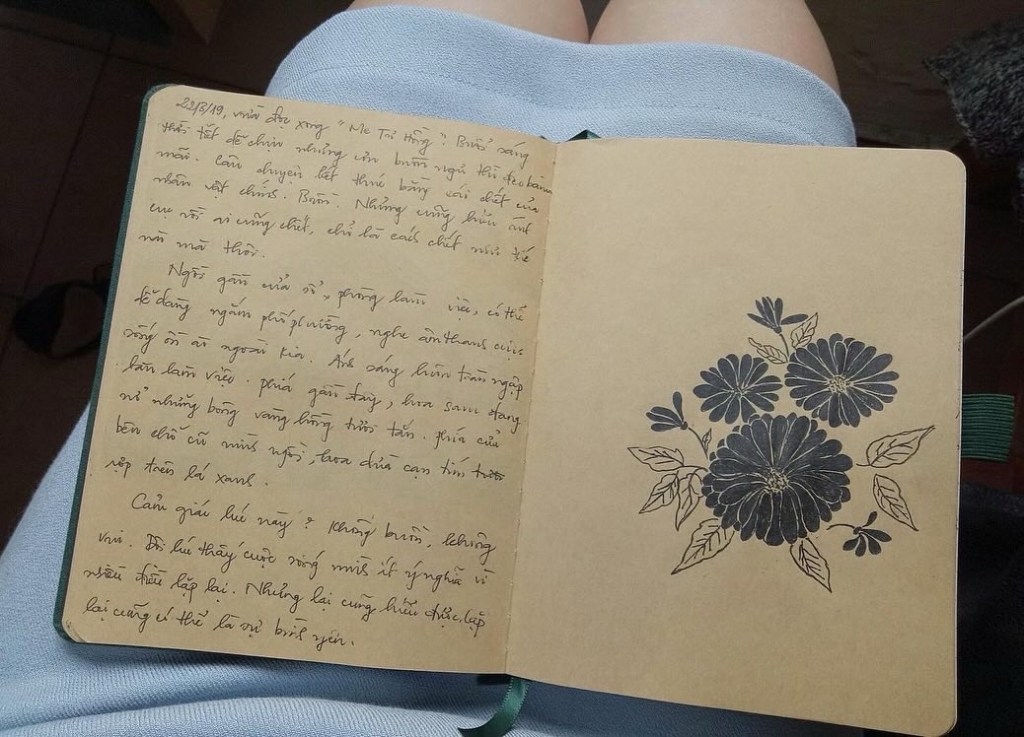 22/8/19, vừa đọc xong "Mẹ Tơ Hồng". Buổi sáng
thời tiết dễ chịu nhưng cơn buồn ngủ thì đeo bám
mãi. Câu chuyện kết thúc bằng cái chết của
nhân vật chính. Buồn. Nhưng cũng hiểu
rồi ai cũng chết, chỉ là cách chết như thế
nào mà thôi.
Ngồi gần cửa sổ, phòng làm việc, có thể
dễ dàng ngắm phố phường, nghe âm thanh cuộc
sống ồn ài ngoài kia. Ánh sáng luôn tràn ngập
bàn làm việc. Phía gần đây, hoa sam đang
nở những bông vàng hồng tươi tắn. Phía cửu
bên chỗ cũ mình ngồi, hoa dừa cạn tím
rợp trên lá xanh.
Cảm giác lúc này? Không buồn, không
vui. Đôi lúc thấy cuộc sống mình ít ý nghĩa vì
nhiều điều lặp lại. Nhưng lại cũng hiểu được, lặp
lại cũng có thể là sự bình yên.